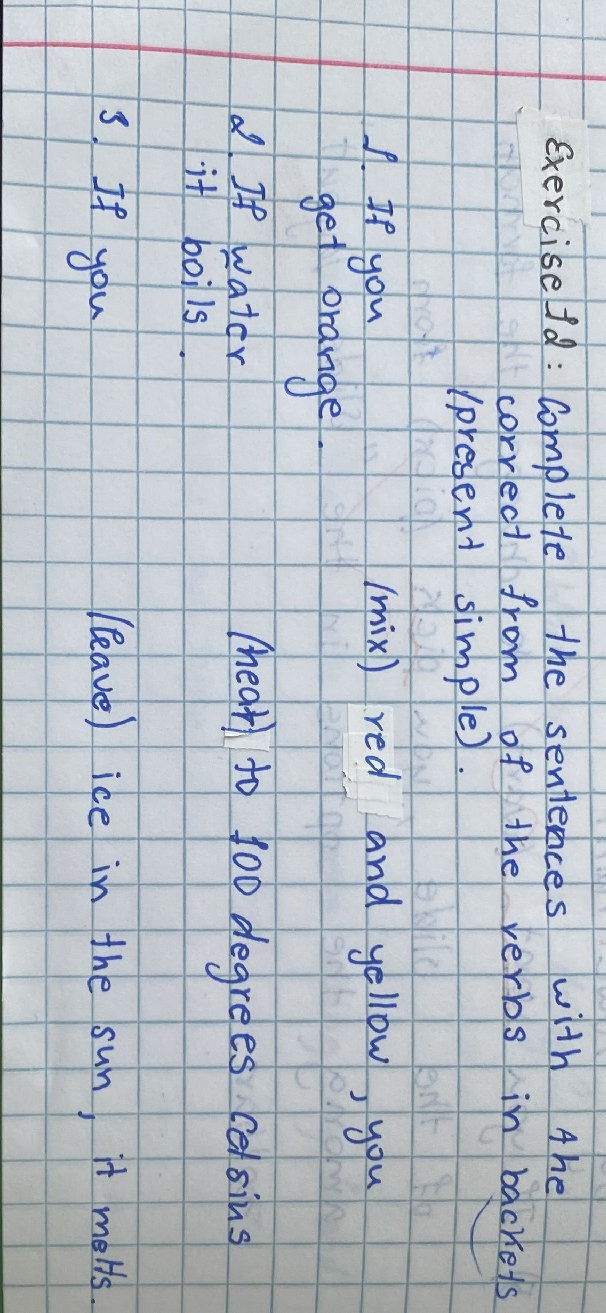 Exercise 12: Complete the sentences with the
correct from of the verbs in backets
(present simple).
1. If you (mix) red and yellow, you
get orange.
2. If water (heat) to 100 degrees Celsius
it boils.
3. If you (leave) ice in the sun, it melts.